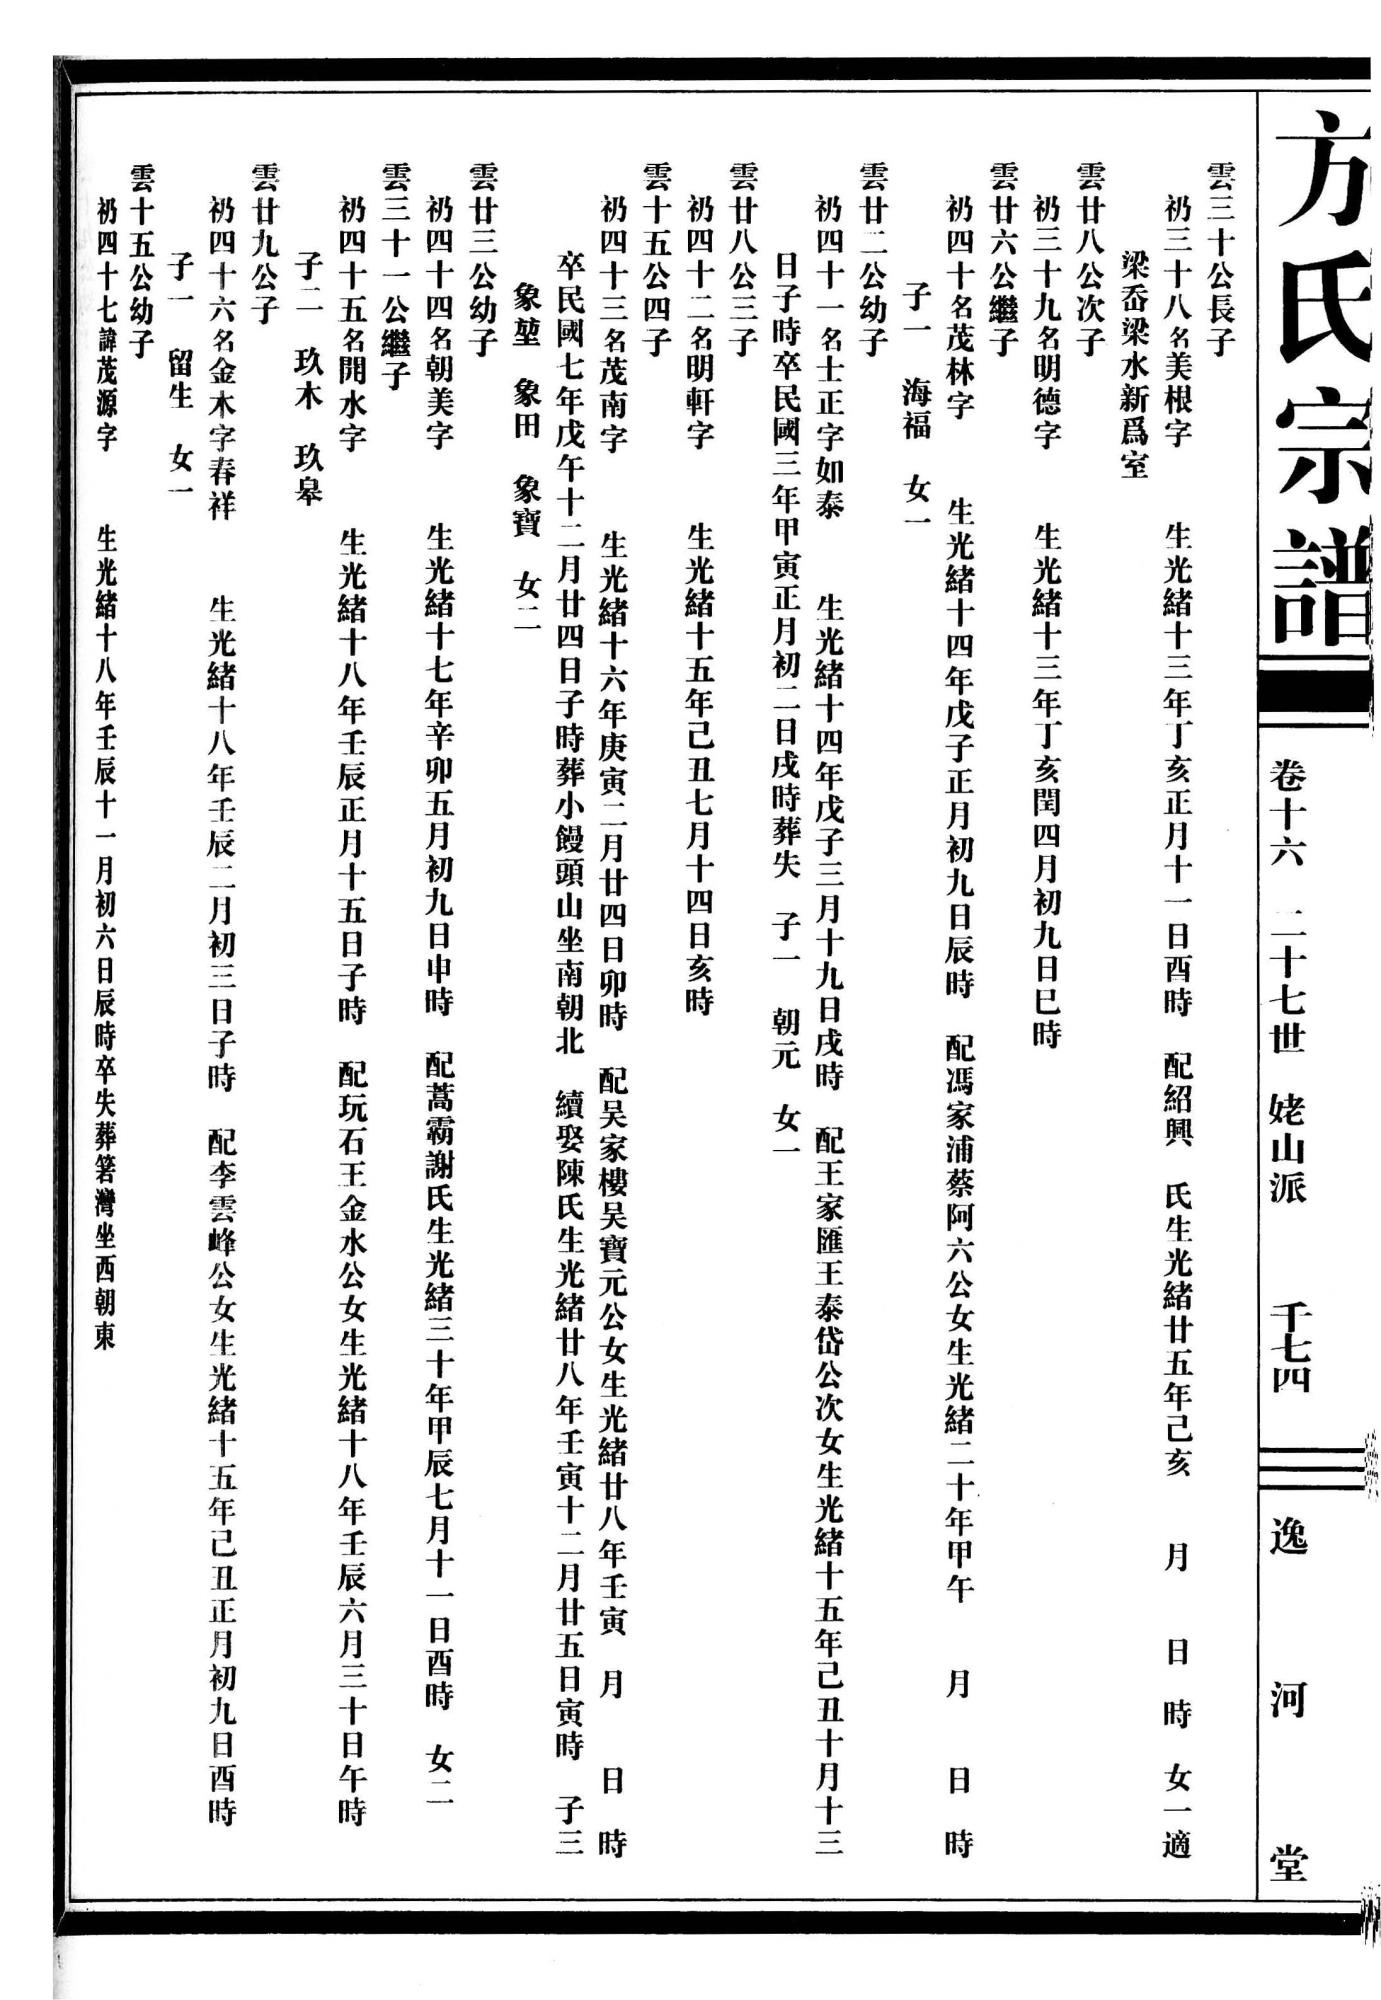 方氏宗譜
卷十六 二十七世 姥山派 千七四
逸河堂
雲三十公長子
礽三十八名美根字 生光緒十三年丁亥正月十一日酉時 配紹興 氏生光緒廿五年己亥 月 日 時 女一適
梁岙梁水新爲室
雲廿八公次子
礽三十九名明德字 生光緒十三年丁亥閏四月初九日巳時
雲廿六公繼子
礽四十名茂林字 生光緒十四年戊子正月初九日辰時 配馮家浦蔡阿六公女生光緒二十年甲午 月 日 時
子一 海福 女一
雲廿二公幼子
礽四十一名士正字如泰 生光緒十四年戊子三月十九日戌時 配王家匯王泰岱公次女生光緒十五年己丑十月十三
日子時卒民國三年甲寅正月初二日戌時葬失 子一 朝元 女一
雲廿八公三子
礽四十二名明軒字 生光緒十五年己丑七月十四日亥時
雲十五公四子
礽四十三名茂南字 生光緒十六年庚寅二月廿四日卯時 配吴家樓吴寶元公女生光緒廿八年壬寅 月 日 時
卒民國七年戊午十二月廿四日子時葬小饅頭山坐南朝北 續娶陳氏生光緒廿八年壬寅十二月廿五日寅時 子三
象堃 象田 象寶 女二
雲廿三公幼子
礽四十四名朝美字 生光緒十七年辛卯五月初九日申時 配蒿霸謝氏生光緒三十年甲辰七月十一日酉時 女二
雲三十一公繼子
礽四十五名開水字 生光緒十八年壬辰正月十五日子時 配玩石王金水公女生光緒十八年壬辰六月三十日午時
子二 玖木 玖皋
雲廿九公子
礽四十六名金木字春祥 生光緒十八年壬辰二月初三日子時 配李雲峰公女生光緒十五年己丑正月初九日酉時
子一 留生 女一
雲十五公幼子
礽四十七諱茂源字 生光緒十八年壬辰十一月初六日辰時卒失葬箬灣坐西朝東